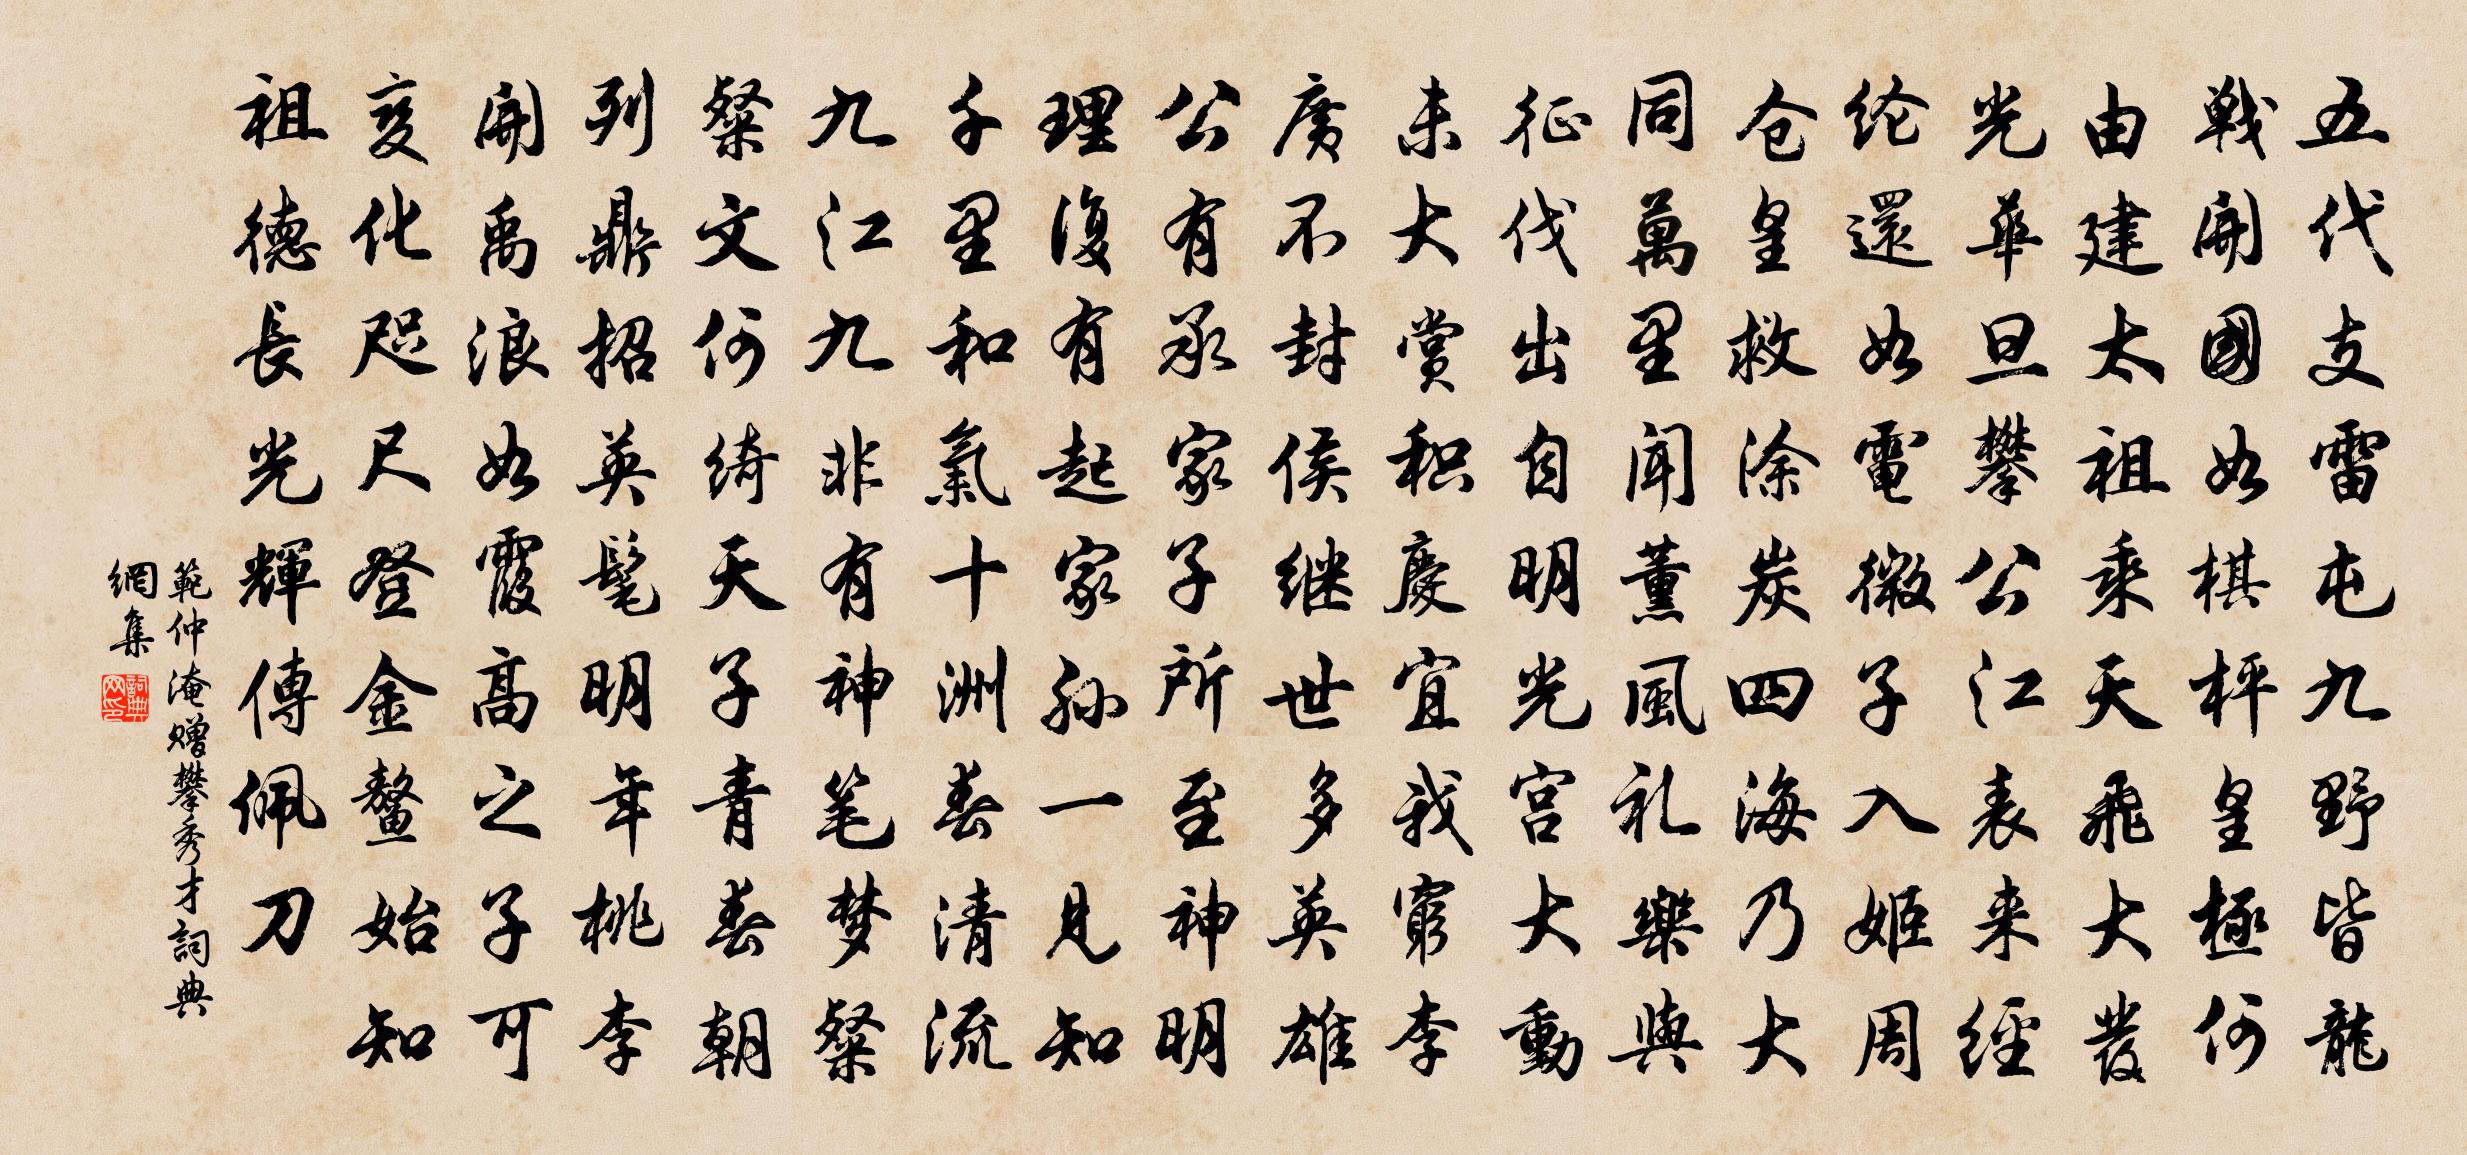 五代支雷屯九野皆龍
戦開國如棋枰皇極何
由建太祖乘天飛大發
光華旦攀公江表来經
纶還如電微子入姬周
仓皇救涂炭四海乃大
同萬里闻薰風礼樂與
征伐出自明光宫大動
未大赏积慶宜我窮李
廣不封侯继世多英雄
公有承家子所至神明
理復有起家孙一見知
千里和氣十洲春清流
九江九非有神笔梦粲
粲文何绮天子青春朝
列鼎招英髦明年桃李
開禹浪如霞高之子可
变化咫尺登金鳌始知
祖德長光輝傳佩刀
範仲淹赠攀秀才詞典
網集
詞典网印